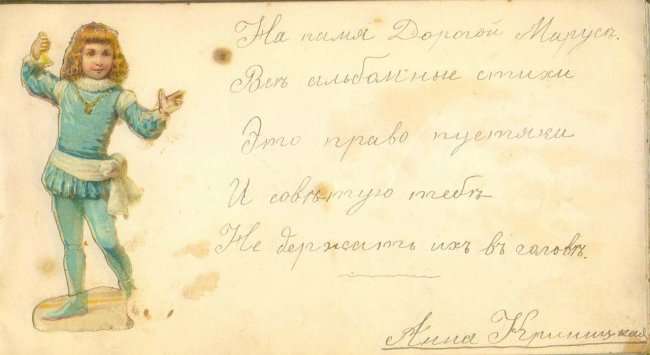 На памя Дорогой Марусѣ.
Всѣ альбомные стихи
Это право пустяки
И совѣтую тебѣ
Не держать ихъ въ головѣ.
Анна Криницкая